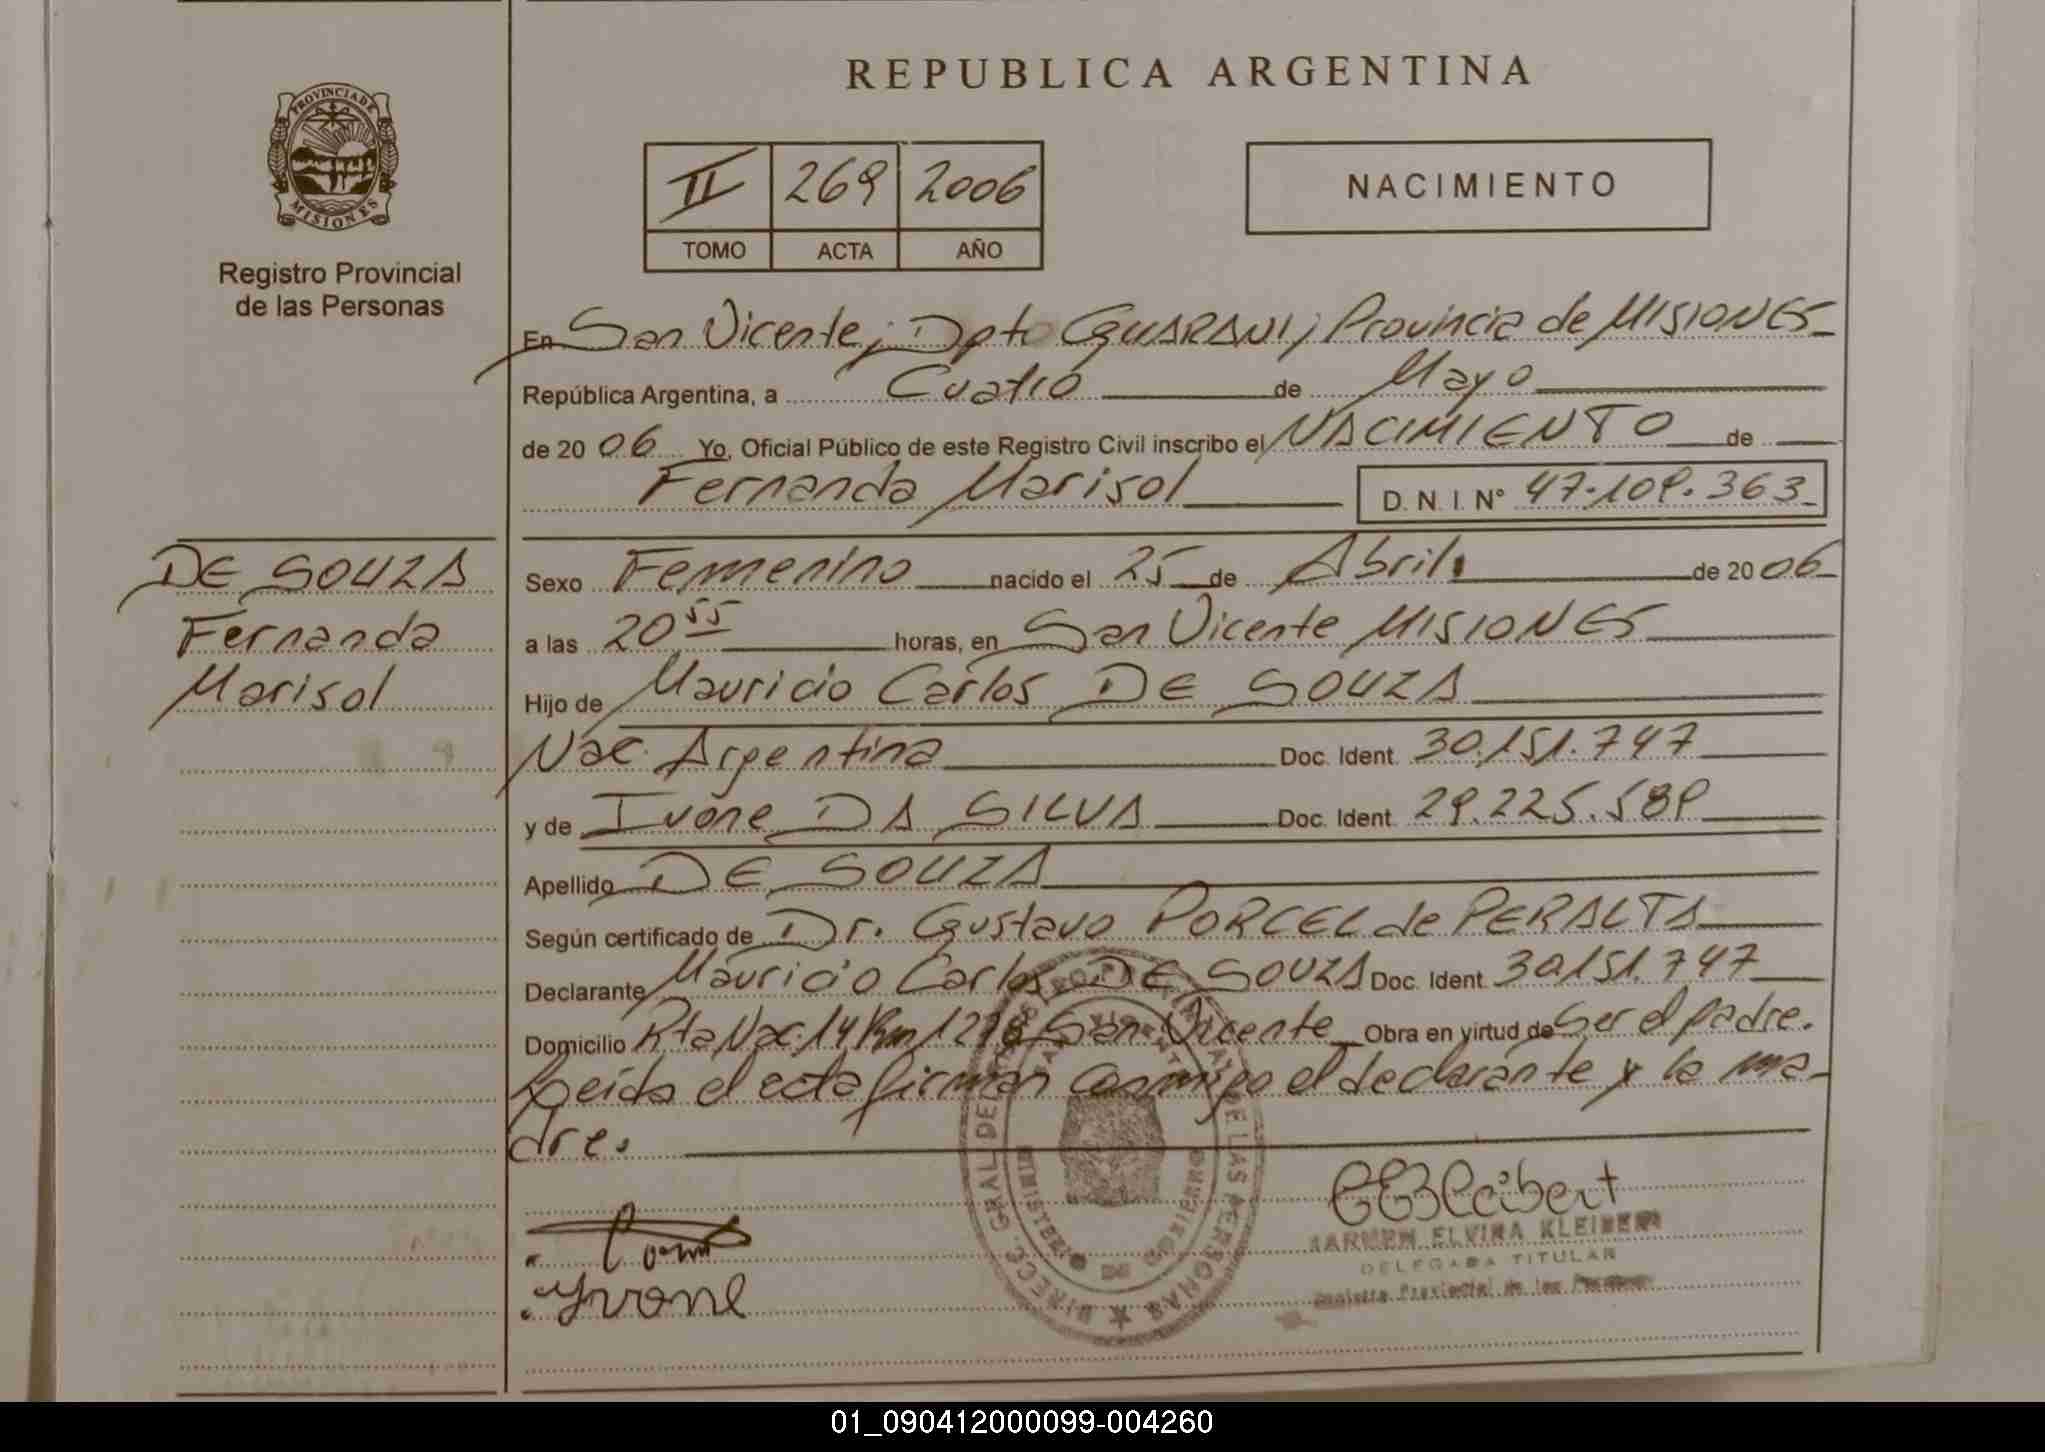 REPUBLICA ARGENTINA
PROVINCIA DE
MISIONES
Registro Provincial
de las Personas
II 269 2006
TOMO ACTA AÑO
NACIMIENTO
En San Vicente, Dpto GUARANI, Provincia de MISIONES
República Argentina, a Cuatro de Mayo
de 20 06 Yo, Oficial Público de este Registro Civil inscribo el NACIMIENTO de
Fernanda Marisol D. N. I. N° 47.109.363
DE SOUZA
Fernanda
Marisol
Sexo Femenino nacido el 25 de Abril de 20 06
a las 20 55 horas, en San Vicente MISIONES
Hijo de Mauricio Carlos DE SOUZA
Nac. Argentina Doc. Ident. 30.151.747
y de Ivone DA SILVA Doc. Ident. 29.225.589
Apellido DE SOUZA
Según certificado de Dr. Gustavo PORCEL de PERALTA
Declarante Mauricio Carlos DE SOUZA Doc. Ident. 30.151.747
Domicilio Rta Nac. 14 Km San Vicente Obra en virtud de Ser el padre.
Leída el acta firman conmigo el declarante y la ma-
dre.
DIRECC. GRAL DE LAS PERSONAS
MINISTERIO DE GOBIERNO
Ivone
CEKleibert
KARMEN ELVIRA KLEIBERT
DELEGADA TITULAR
Registro Provincial de las Personas
01_090412000099-004260